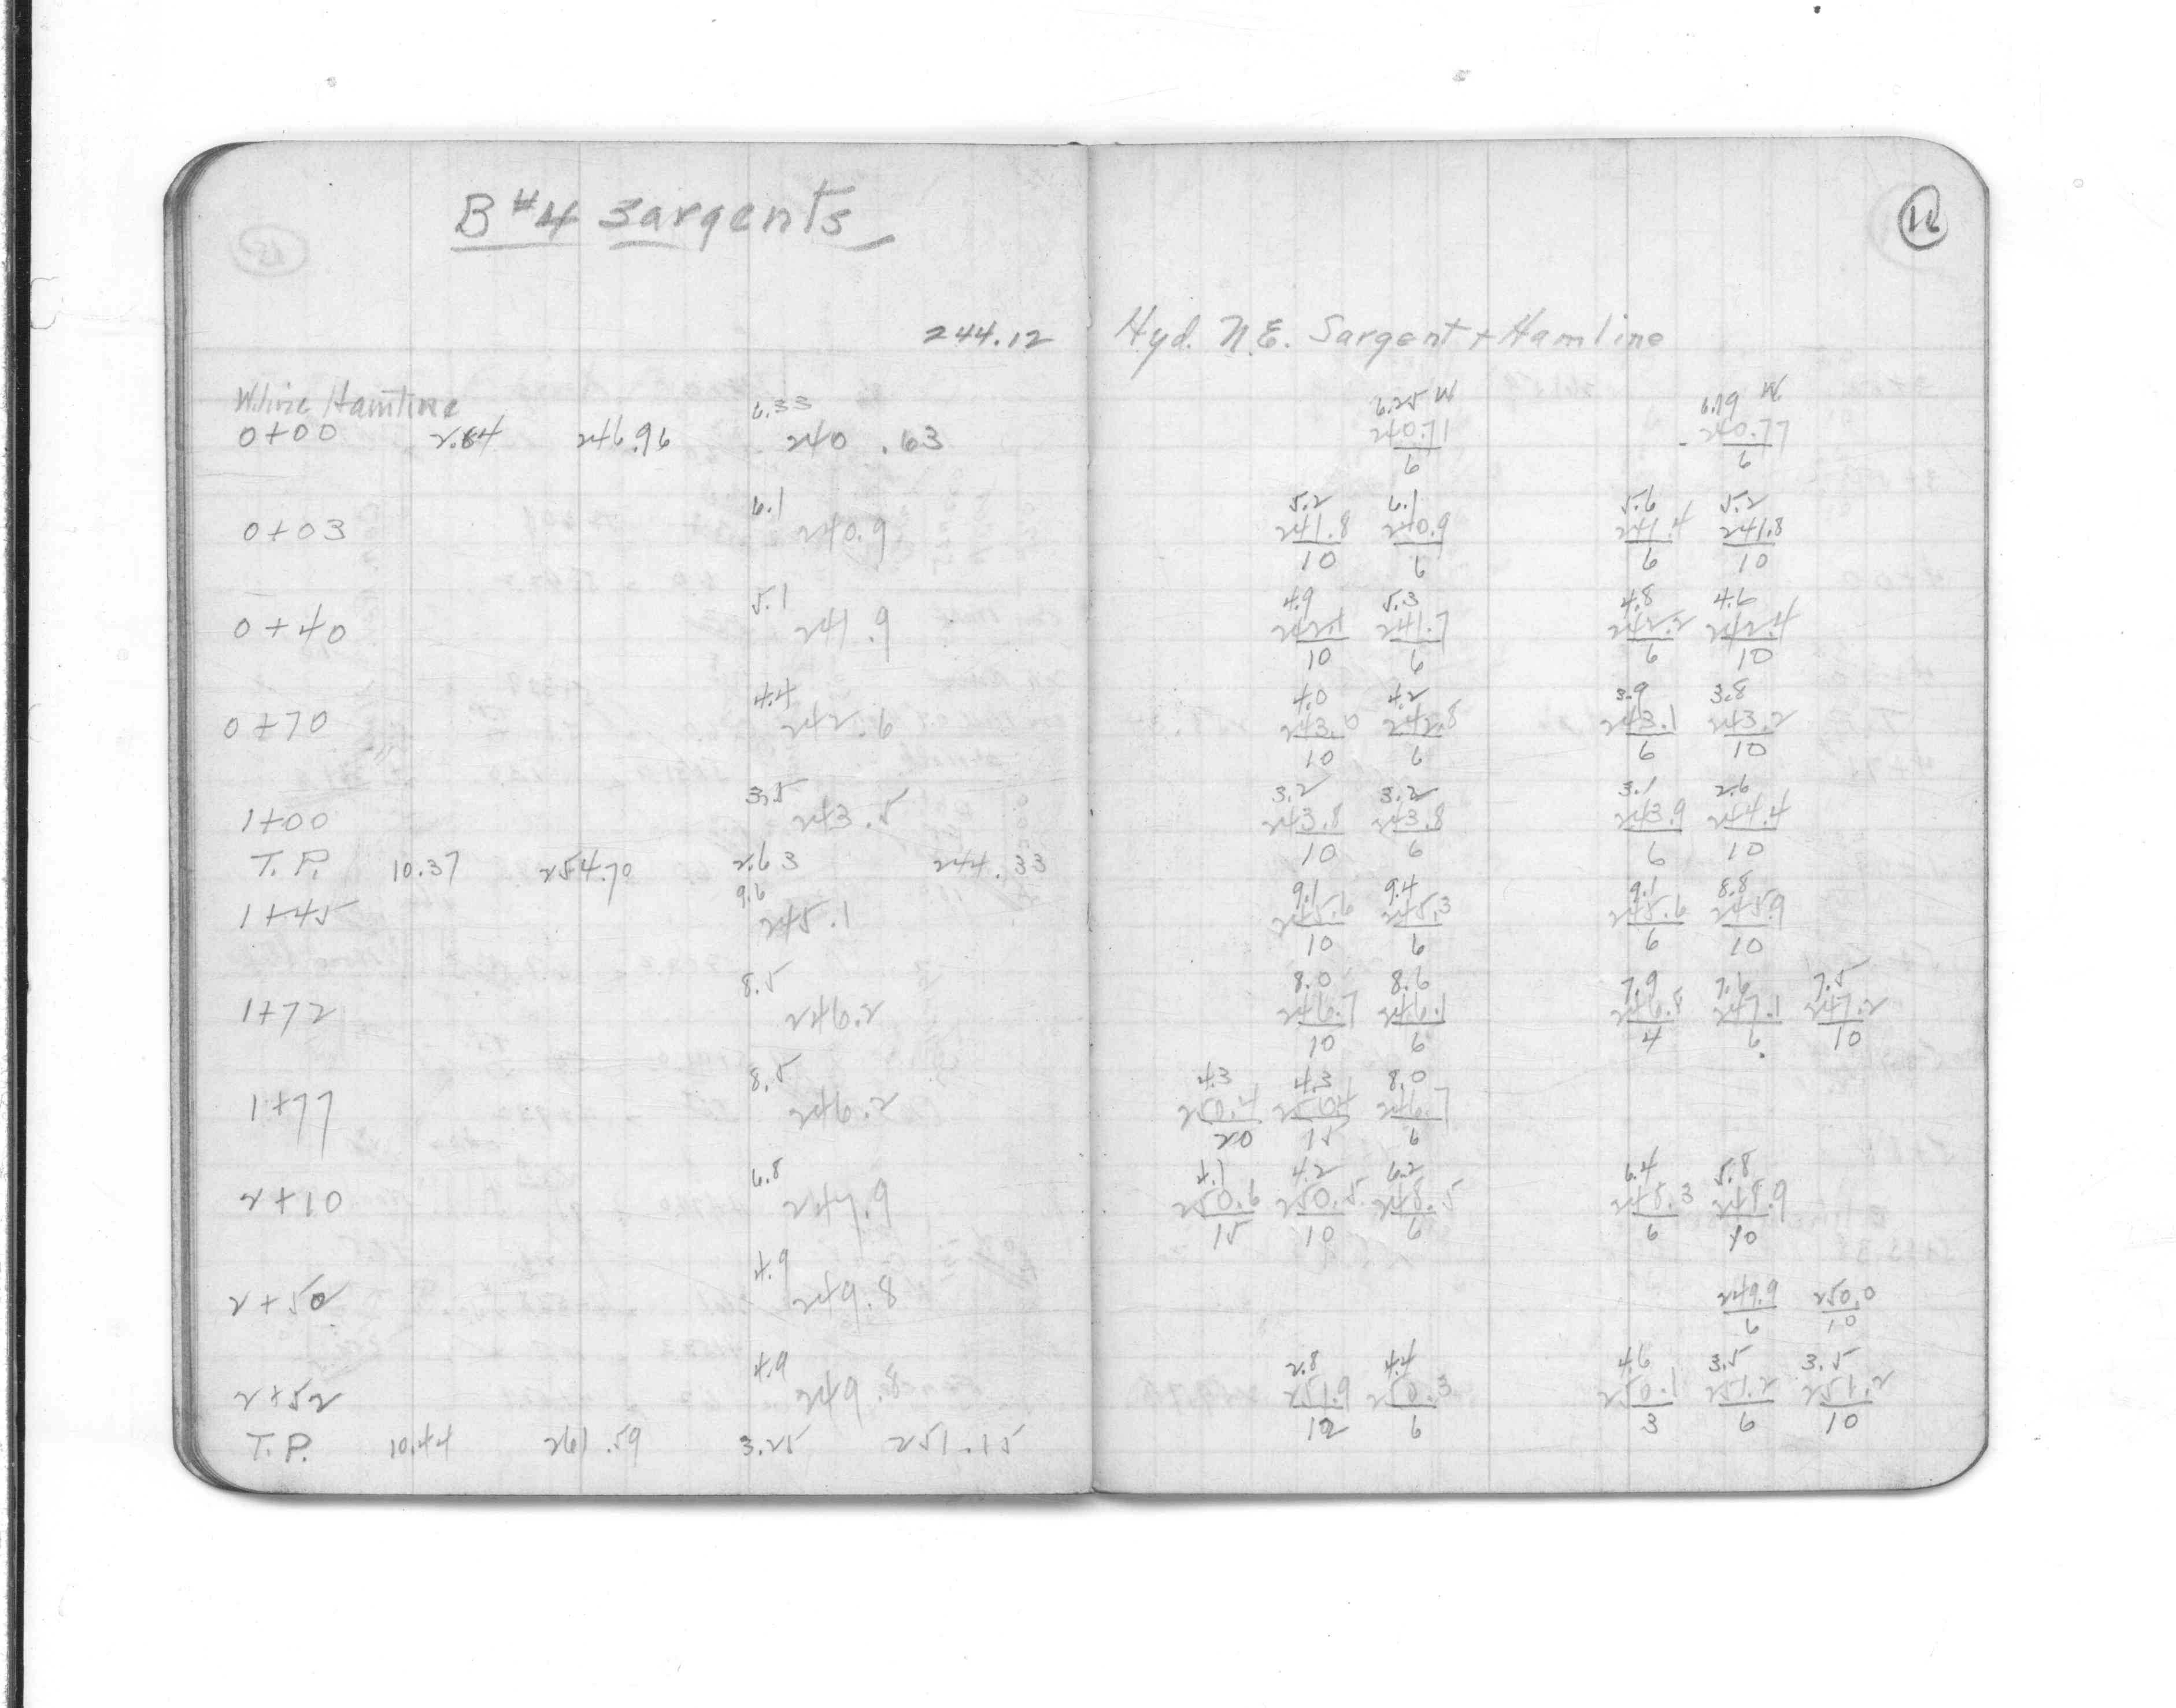 B #4 Sargents
16
244.12 Hyd. N.E. Sargent + Hamline
W. line Hamline 6.33 6.25 W 6.19 W
0+00 2.84 246.96 240.63 240.71 240.77
6 6
6.1 5.2 6.1 5.6 5.2
0+03 240.9 241.8 240.9 241.4 241.8
10 6 6 10
5.1 4.9 5.3 4.8 4.6
0+40 241.9 242.1 241.7 242.2 242.4
10 6 6 10
4.4 4.0 4.2 3.9 3.8
0+70 242.6 243.0 242.8 243.1 243.2
10 6 6 10
3.5 3.2 3.2 3.1 2.6
1+00 243.5 243.8 243.8 243.9 244.4
10 6 6 10
T.P. 10.37 254.70 2.63 244.33
9.6 9.1 9.4 9.1 8.8
1+45 245.1 245.6 245.3 245.6 245.9
10 6 6 10
8.5 8.0 8.6 7.9 7.6 7.5
1+72 246.2 246.7 246.1 246.8 247.1 247.2
10 6 4 6 10
8.5 4.3 4.3 8.0
1+77 246.2 250.4 250.4 246.7
20 15 6
6.8 4.1 4.2 6.2 6.4 5.8
2+10 247.9 250.6 250.5 248.5 248.3 248.9
15 10 6 6 10
4.9
2+50 249.8 249.9 250.0
6 10
4.9 2.8 4.4 4.6 3.5 3.5
2+52 249.8 251.9 250.3 250.1 251.2 251.2
12 6 3 6 10
T.P. 10.44 261.59 3.25 251.15